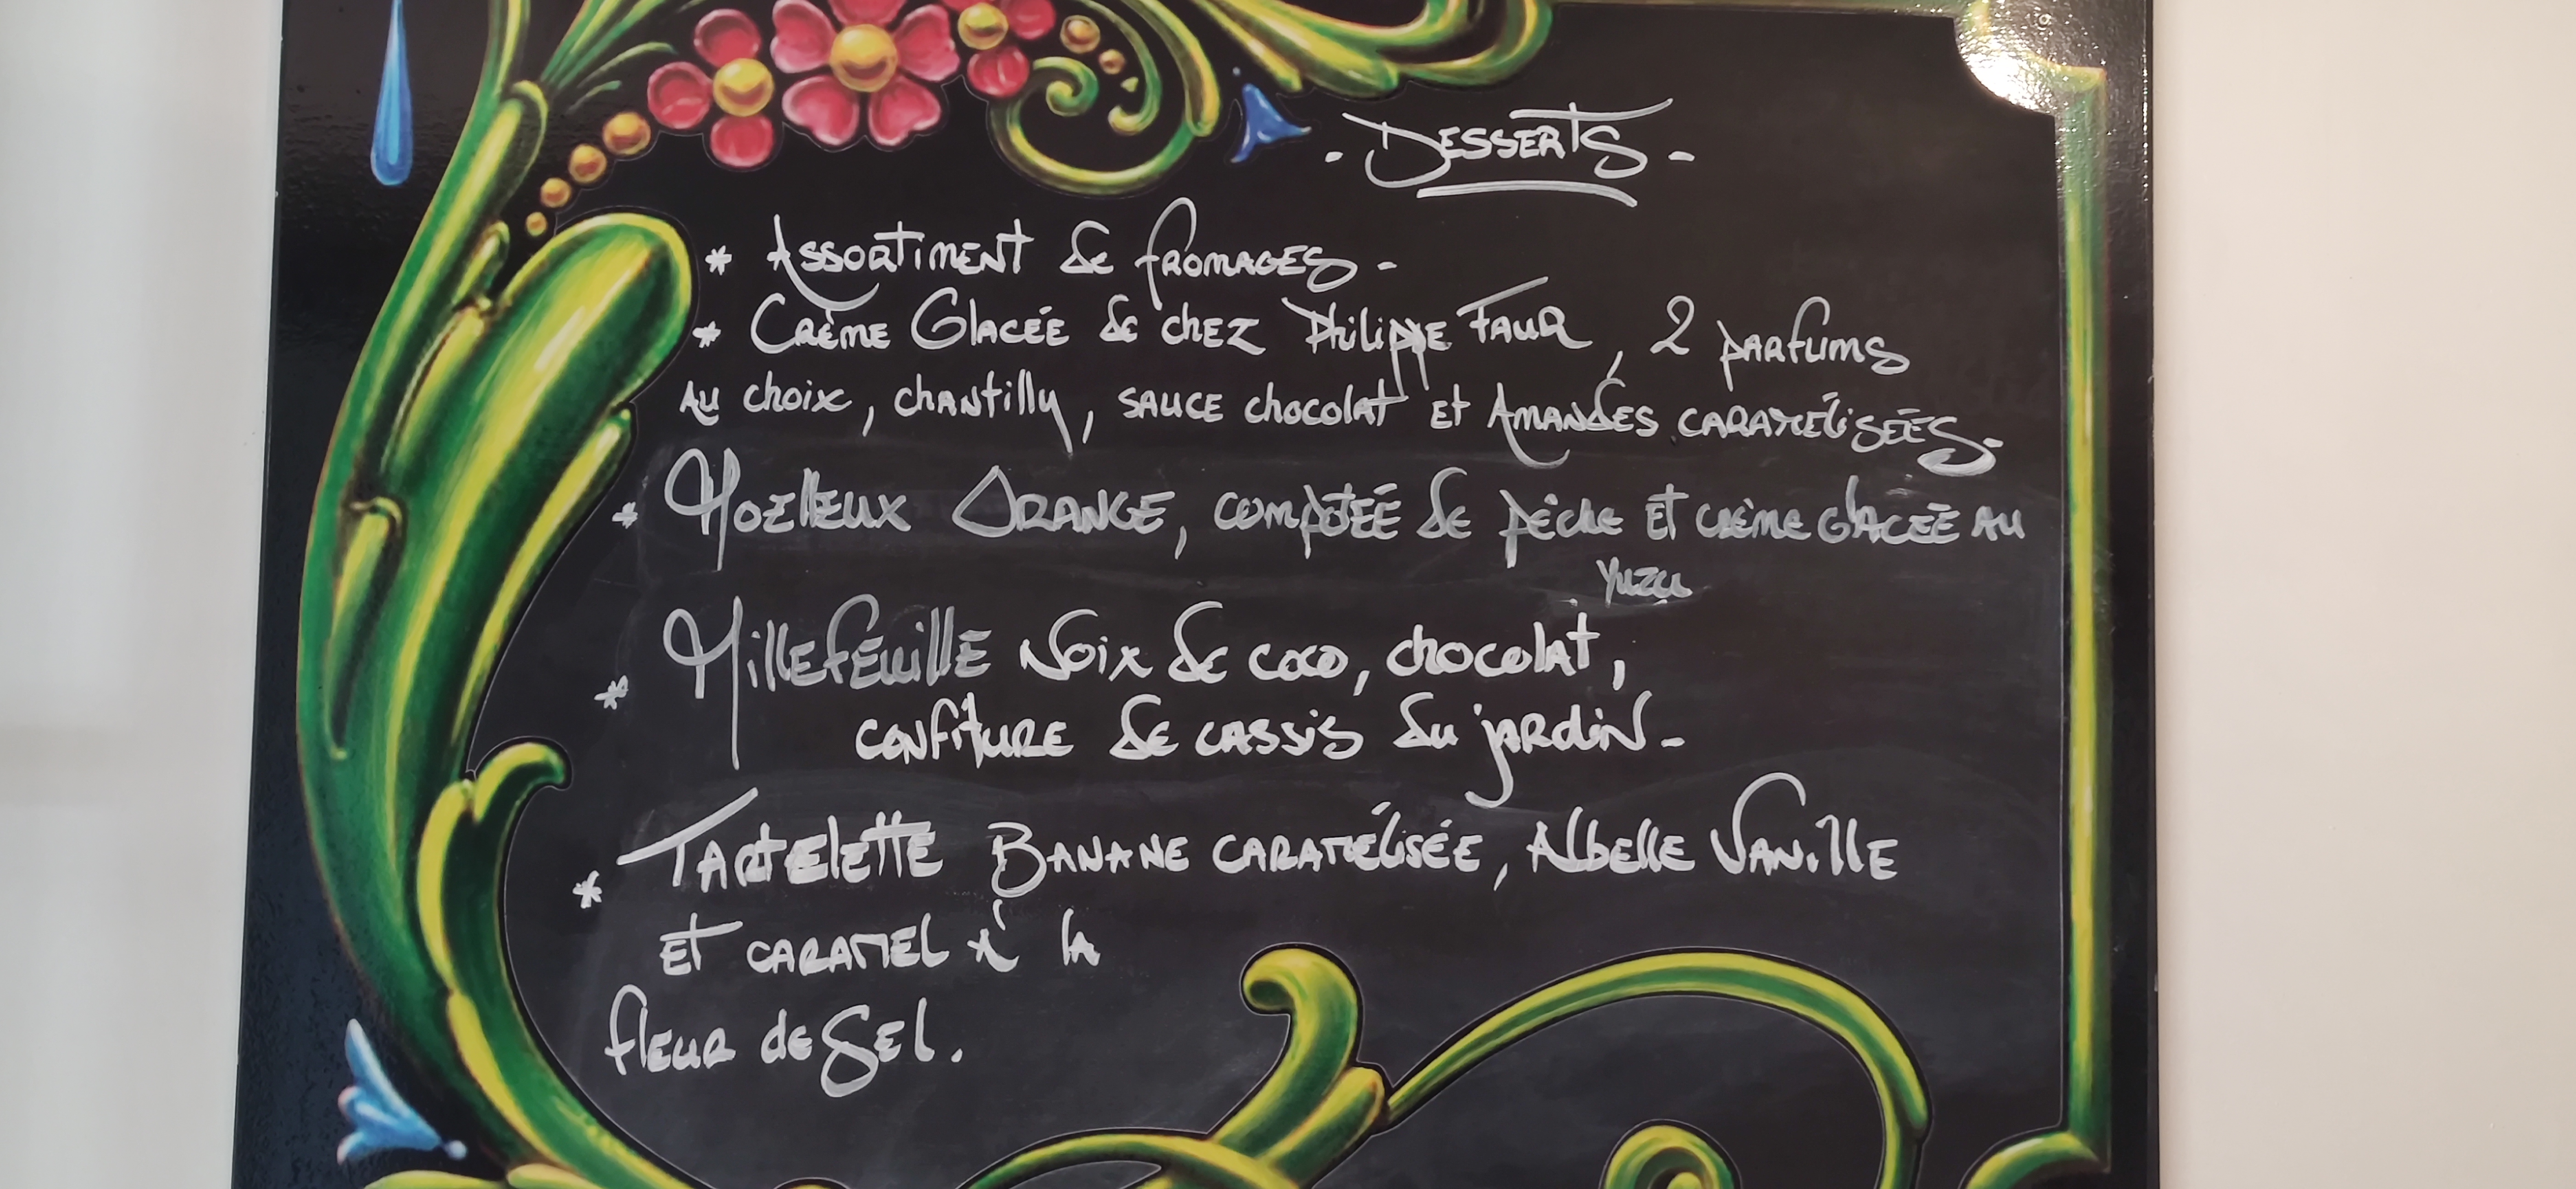 - Desserts -
* Assortiment de fromages -
* Crème Glacée de chez Philippe Faur, 2 parfums
au choix, chantilly, sauce chocolat et Amandes caramélisées -
* Moelleux Orange, compotée de pêche et crème glacée au
yuzu
* Millefeuille Noix de coco, chocolat,
confiture de cassis du jardin -
* Tartelette Banane caramélisée, Albelle Vanille
et caramel à la
fleur de Sel.